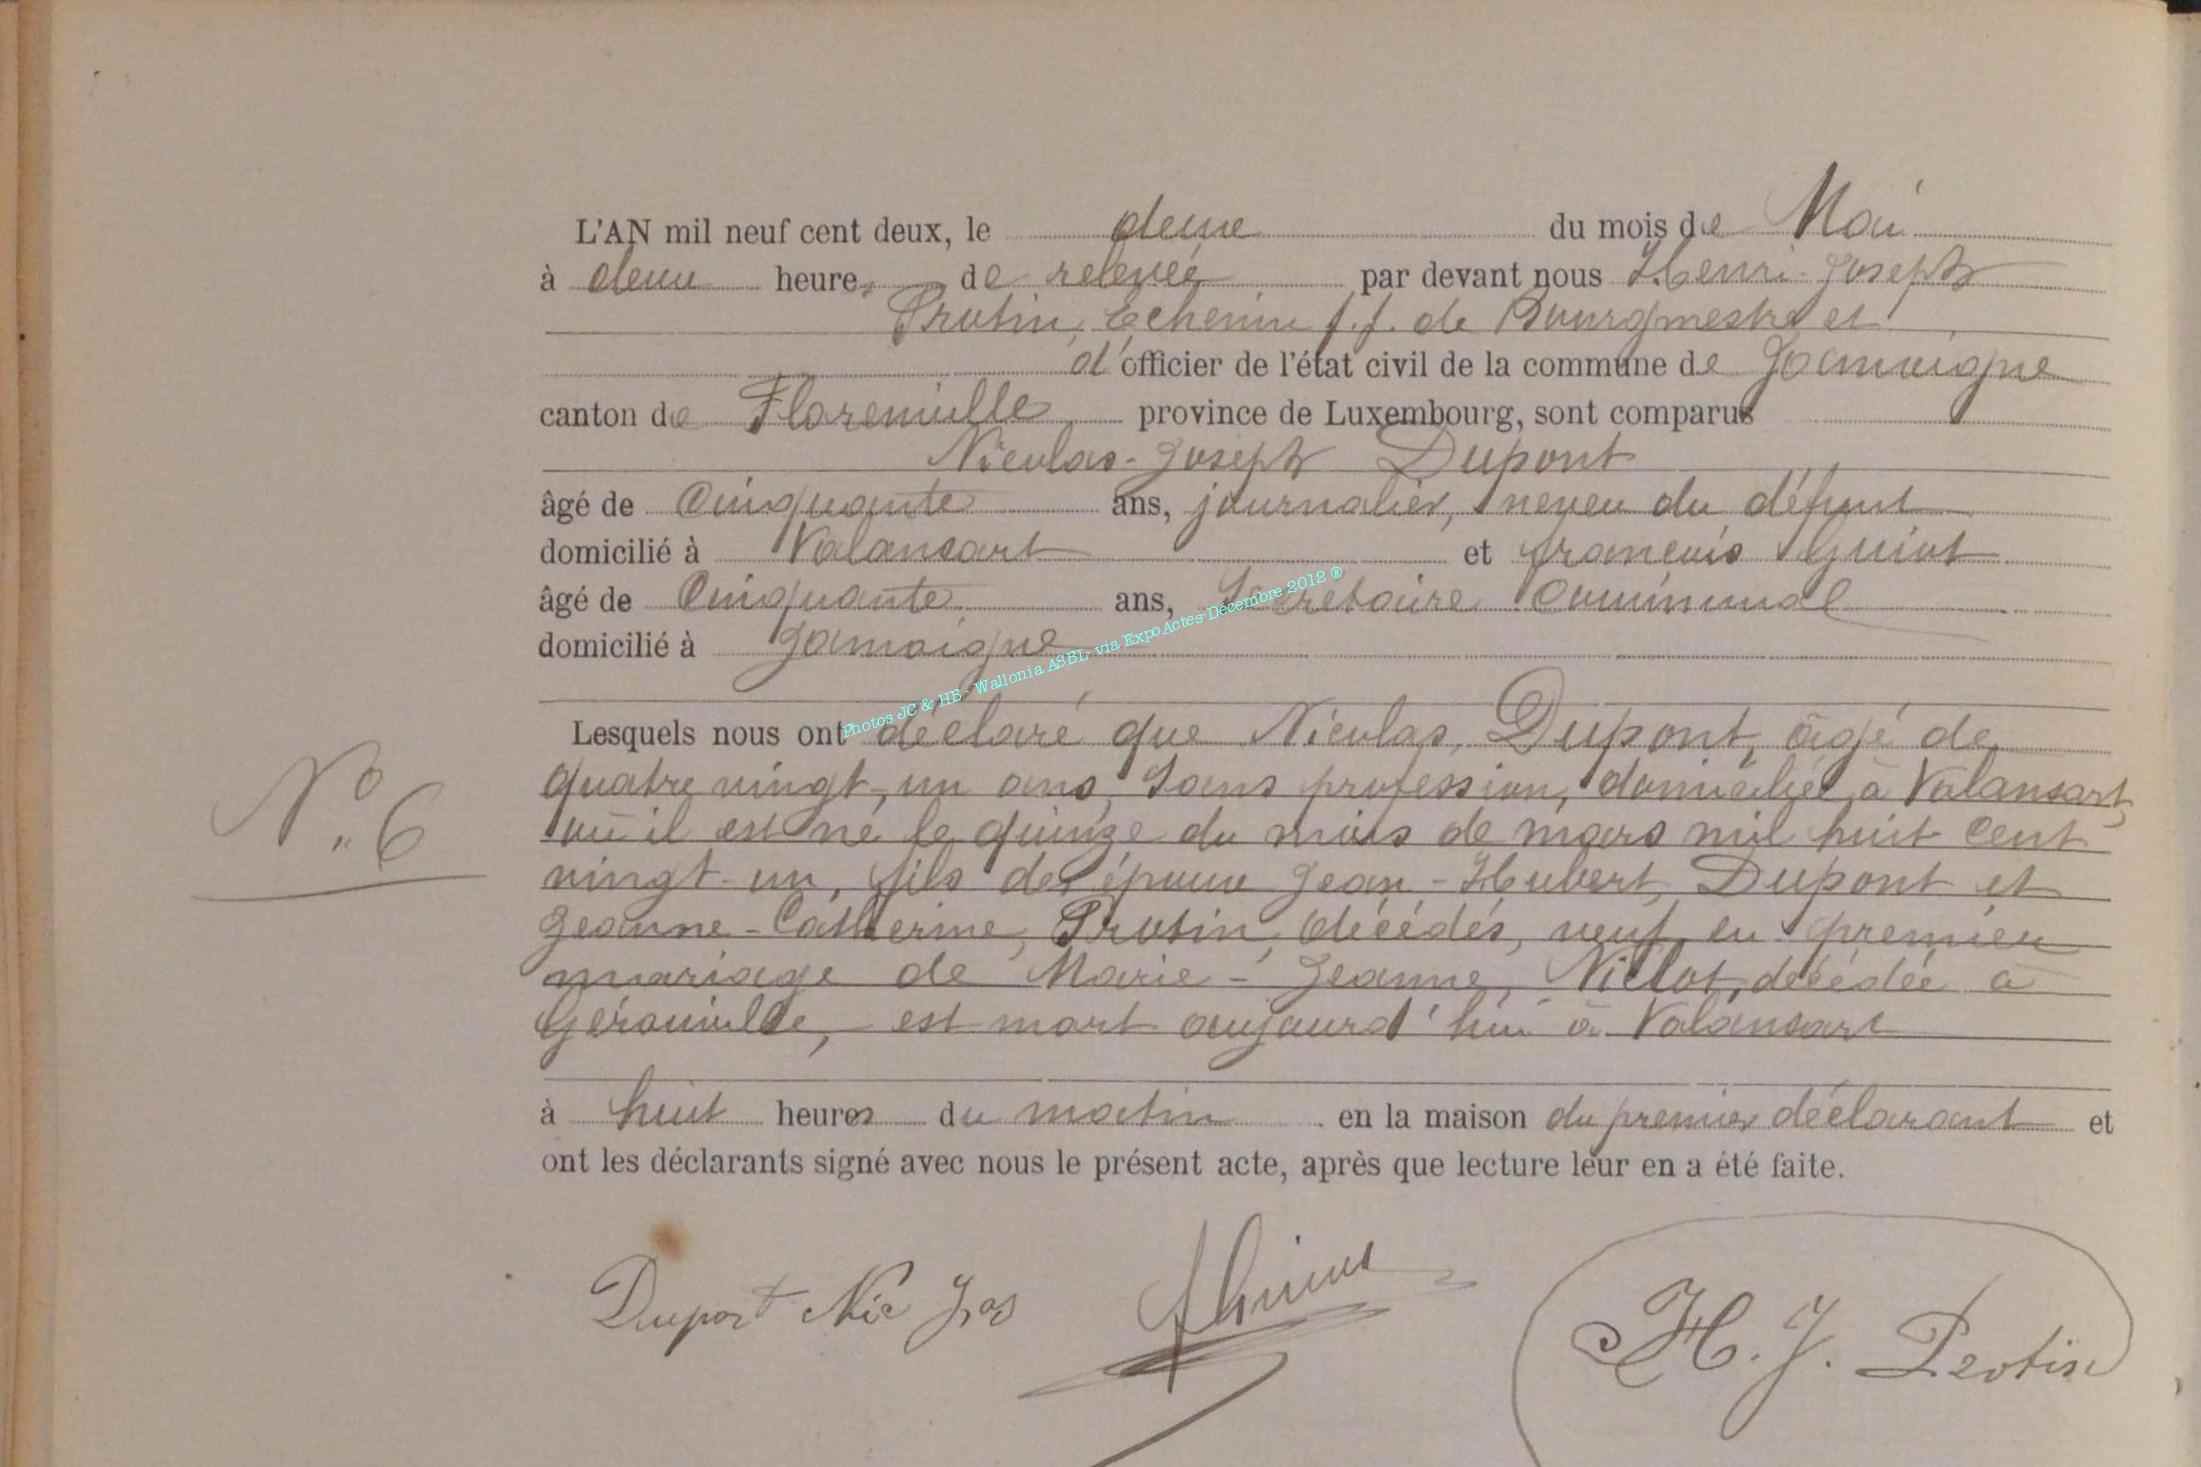 L'AN mil neuf cent deux, le deux du mois de Mai
à deux heures de relevée par devant nous Henri-Joseph
Protin, Echevin f.f. de Bourgmestre et
d'officier de l'état civil de la commune de Jamoigne
canton de Florenville province de Luxembourg, sont comparus
Nicolas-Joseph Dupont
âgé de Cinquante ans, journalier, neveu du défunt
domicilié à Valansart et françois Guiot
âgé de Cinquante ans, Secrétaire Communal
domicilié à Jamoigne
Lesquels nous ont déclaré que Nicolas, Dupont, âgé de
quatre vingt-un ans, sans profession, domicilié à Valansart,
N° 6
où il est né le quinze du mois de mars mil huit cent
vingt-un, fils des époux Jean-Hubert, Dupont et
Jeanne-Catherine, Protin, décédés, veuf en premier
mariage de Marie-Jeanne, décédée à
Gérouville, est mort aujourd'hui à Valansart
à huit heures du matin en la maison du premier déclarant et
ont les déclarants signé avec nous le présent acte, après que lecture leur en a été faite.
Dupont Nic Jos
H. J. Protin
Photos JC & HB - Wallonia ASBL- via ExpoActes Décembre 2012 ®